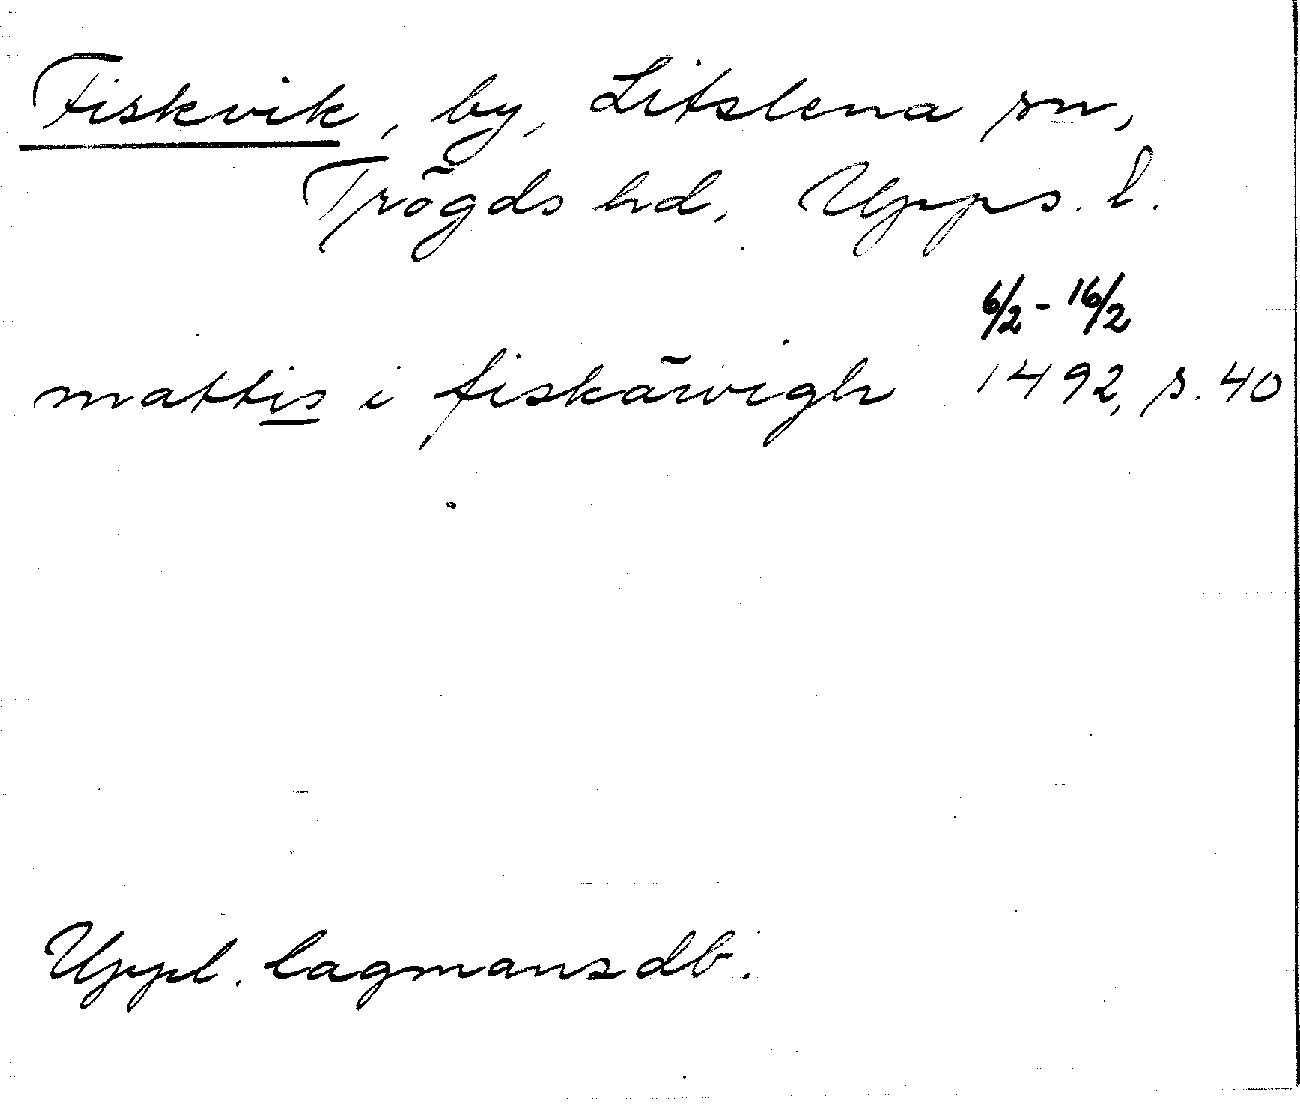 Fiskvik, by, Litslena sn,
Trögds hd, Upps. l.
6/2 - 16/2
mattis i fiskärwigh 1492, s. 40
Uppl. lagmansdb.